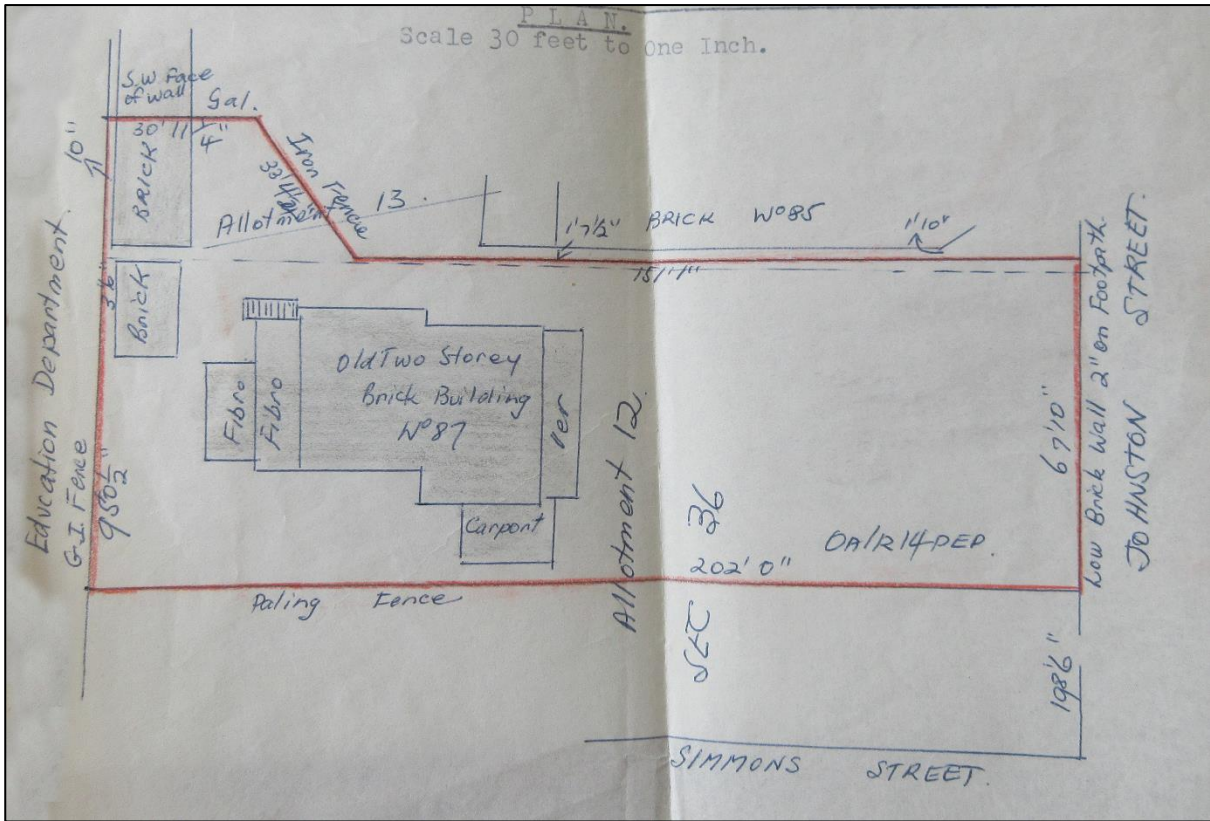 PLAN.
Scale 30 feet to One Inch.
S.W Face
of wall
Gal.
30' 11
4"
10"
BRICK
Iron Fence
33'4
Allotment 13.
1'7½"
BRICK Nº85
1'10"
3'6"
Brick
Education Department.
G.I. Fence
Fibro
Fibro
Old Two Storey
Brick Building
Nº87
Ver
Carport
Allotment 12.
SEC 36
202' 0"
OA1R14PER.
67'10"
Low Brick Wall 2" on Footpath.
JOHNSTON STREET.
Paling Fence
198'6"
SIMMONS STREET.